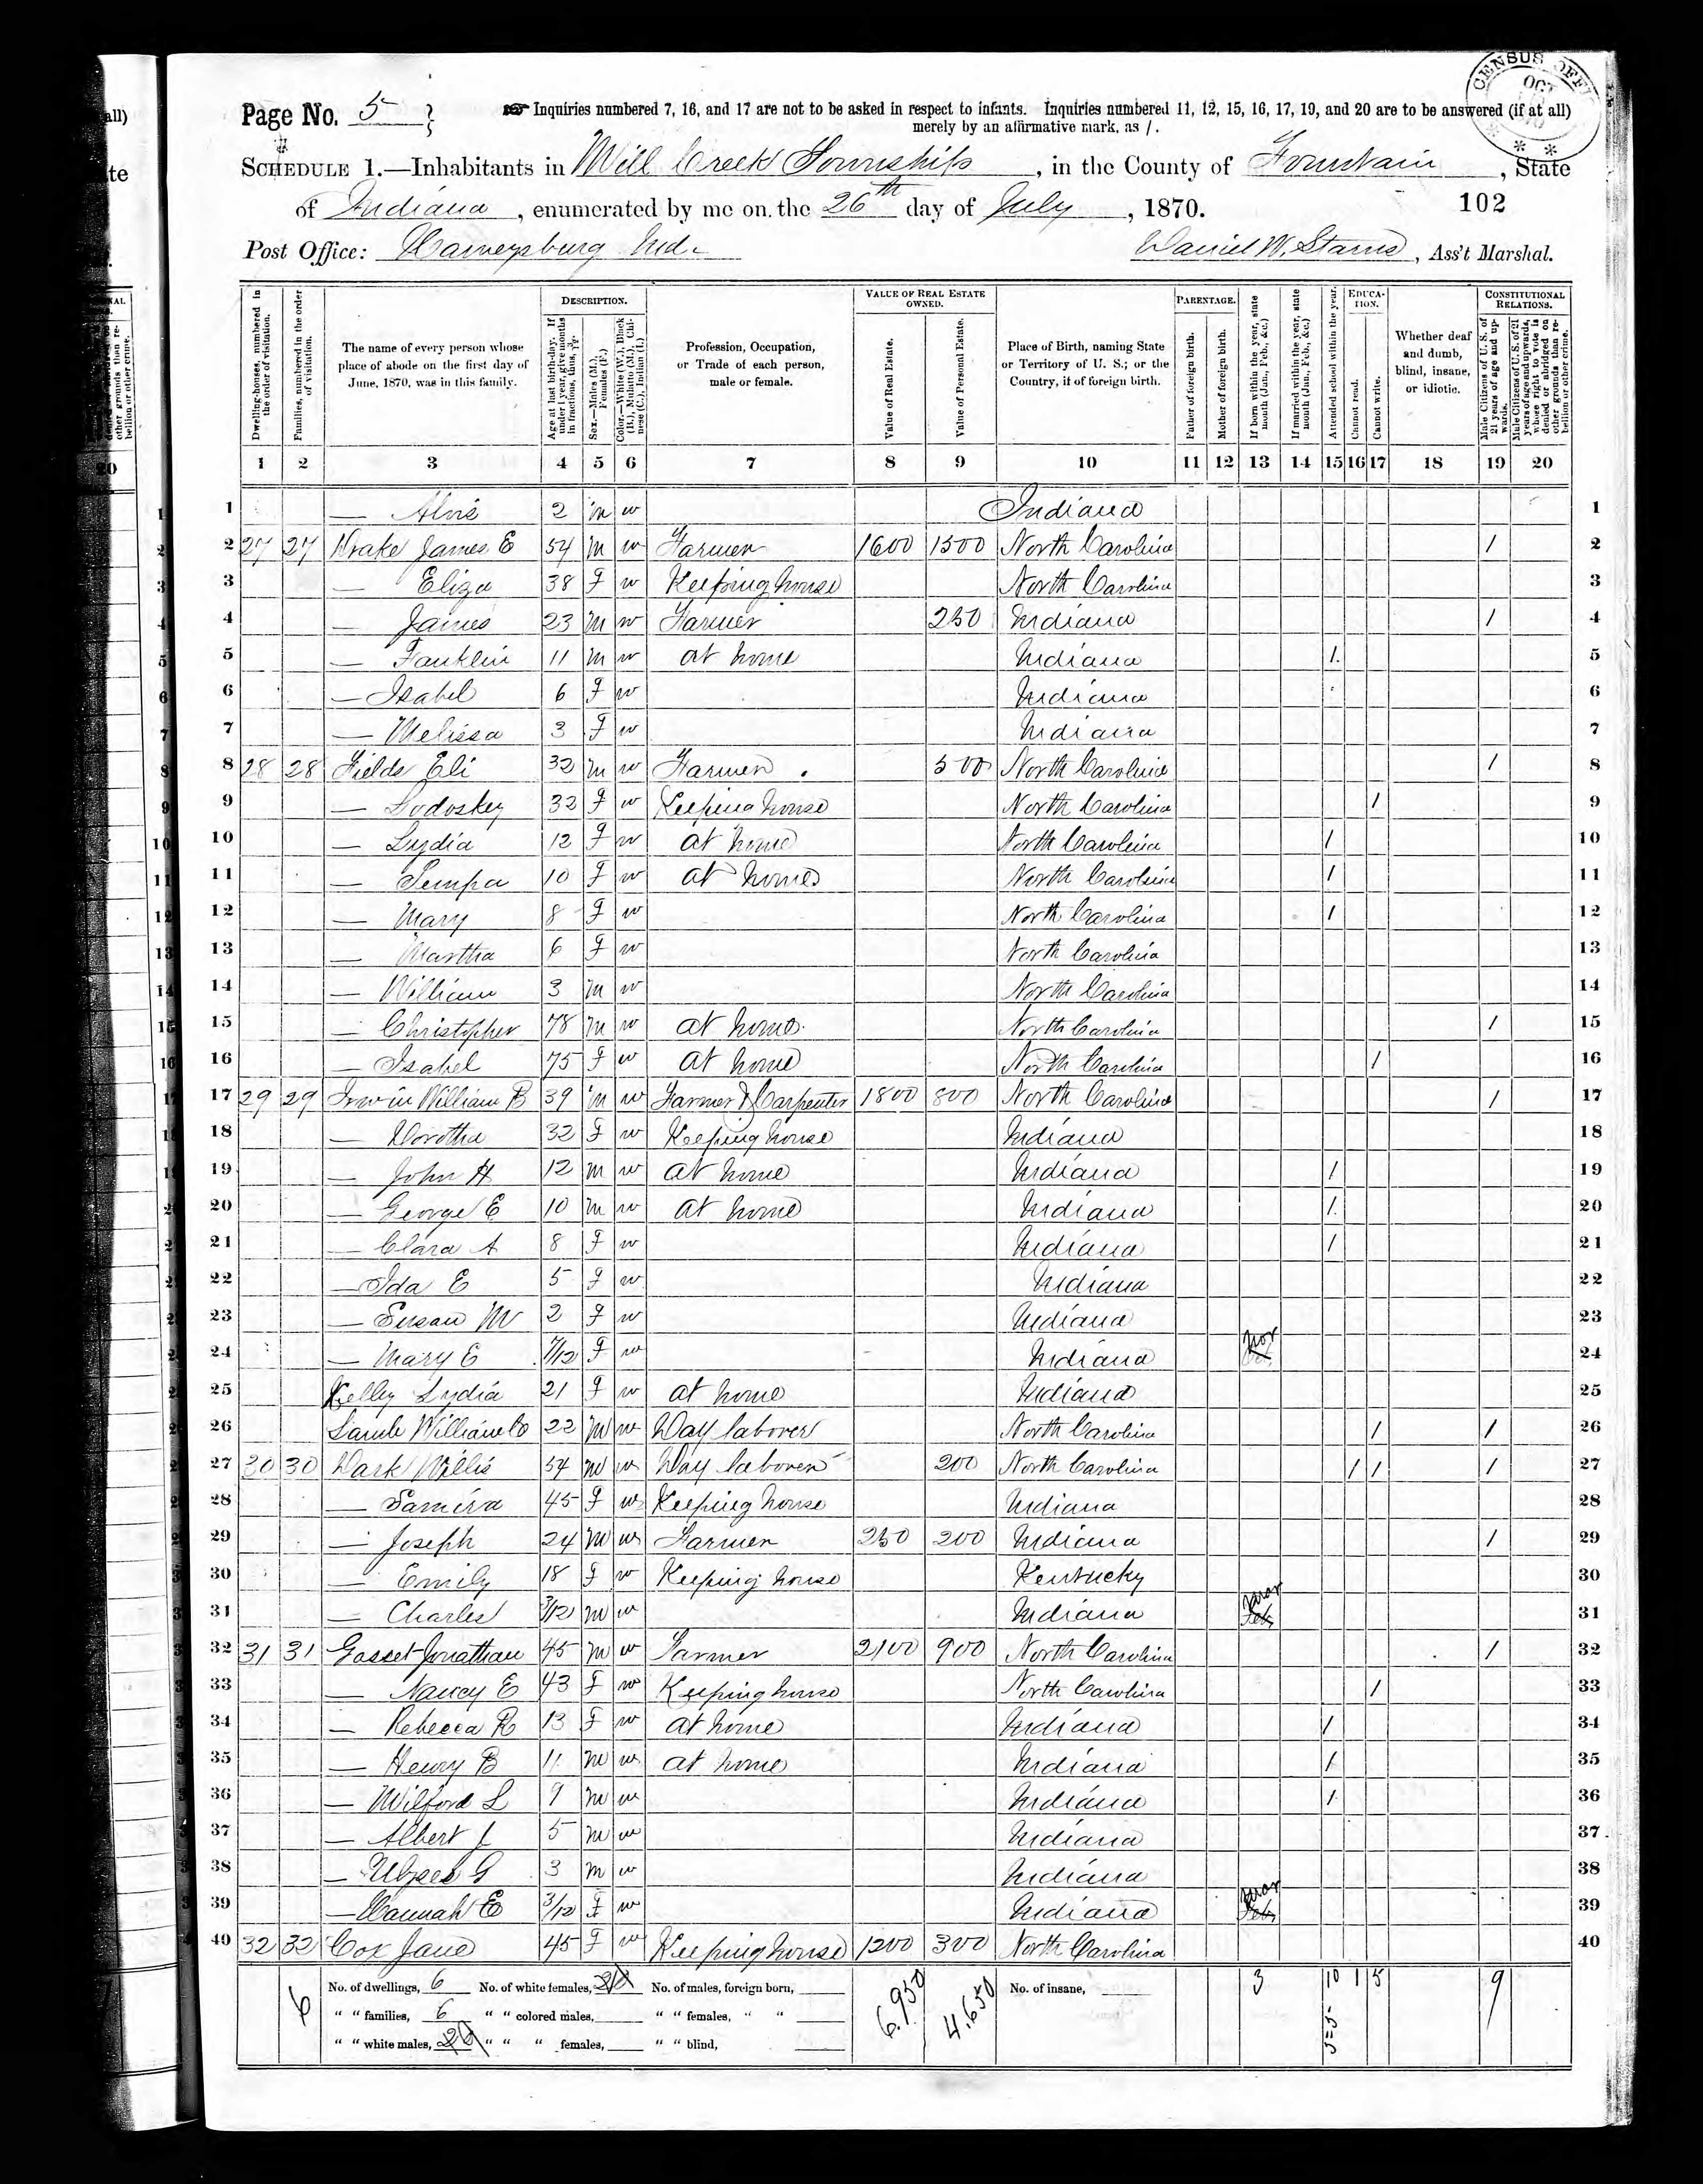 Page No. 5
Inquiries numbered 7, 16, and 17 are not to be asked in respect to infants. Inquiries numbered 11, 12, 15, 16, 17, 19, and 20 are to be answered (if at all)
merely by an affirmative mark, as /.
CENSUS OFFI
OCT
SCHEDULE 1.—Inhabitants in Mill Creek Township, in the County of Fountain, State
of Indiana, enumerated by me on the 26th day of July, 1870. 102
Post Office: Harveysburg Ind. Daniel W. Starns, Ass't Marshal.
Dwelling-houses, numbered in the order of visitation.
Families, numbered in the order of visitation.
The name of every person whose place of abode on the first day of June, 1870, was in this family.
DESCRIPTION.
Age at last birth-day. If under 1 year, give months in fractions, thus, 3/12.
Sex.—Males (M.), Females (F.)
Color.—White (W.), Black (B.), Mulatto (M.), Chinese (C.), Indian (I.)
Profession, Occupation, or Trade of each person, male or female.
VALUE OF REAL ESTATE OWNED.
Value of Real Estate.
Value of Personal Estate.
Place of Birth, naming State or Territory of U. S.; or the Country, if of foreign birth.
PARENTAGE.
Father of foreign birth.
Mother of foreign birth.
If born within the year, state month (Jan., Feb., &c.)
If married within the year, state month (Jan., Feb., &c.)
Attended school within the year.
EDUCATION.
Cannot read.
Cannot write.
Whether deaf and dumb, blind, insane, or idiotic.
CONSTITUTIONAL RELATIONS.
Male Citizens of U. S. of 21 years of age and upwards.
Male Citizens of U. S. of 21 years of age and upwards, where right to vote is denied or abridged on other grounds than rebellion or other crime.
1 2 3 4 5 6 7 8 9 10 11 12 13 14 15 16 17 18 19 20
1 — Alvis 2 m w Indiana 1
2 27 27 Drake James E 54 m w Farmer 1600 1500 North Carolina / 2
3 — Eliza 38 F w Keeping house North Carolina 3
4 — James 23 m w Farmer 250 Indiana / 4
5 — Fanklin 11 m w at home Indiana / 5
6 — Isabel 6 F w Indiana 6
7 — Melissa 3 F w Indiana 7
8 28 28 Fields Eli 32 m w Farmer 500 North Carolina / 8
9 — Lodoskey 32 F w Keeping house North Carolina / 9
10 — Lydia 12 F w at home North Carolina / 10
11 — Tempa 10 F w at home North Carolina / 11
12 — Mary 8 F w North Carolina / 12
13 — Martha 6 F w North Carolina 13
14 — William 3 m w North Carolina 14
15 — Christopher 78 m w at home North Carolina / 15
16 — Isabel 75 F w at home North Carolina / 16
17 29 29 Irwin William B 39 m w Farmer & Carpenter 1800 800 North Carolina / 17
18 — Dorotha 32 F w Keeping house Indiana 18
19 — John H 12 m w at home Indiana / 19
20 — George E 10 m w at home Indiana / 20
21 — Clara A 8 F w Indiana / 21
22 — Ida E 5 F w Indiana 22
23 — Susan M 2 F w Indiana 23
24 — Mary E 7/12 F w Indiana Nov 24
25 Kelley Lydia 21 F w at home Indiana 25
26 Lamb William C 22 M w Day laborer North Carolina / / 26
27 30 30 Dark Willis 54 M w Day laborer 200 North Carolina / / / 27
28 — Samira 45 F w Keeping house Indiana 28
29 — Joseph 24 M w Farmer 250 200 Indiana / 29
30 — Emily 18 F w Keeping house Kentucky 30
31 — Charles 3/12 M w Indiana Feb Mar 31
32 31 31 Gasset Jonathan 45 M w Farmer 2100 900 North Carolina / 32
33 — Nancy E 43 F w Keeping house North Carolina / 33
34 — Rebecca R 13 F w at home Indiana / 34
35 — Henry B 11 M w at home Indiana / 35
36 — Wilford L 9 M w Indiana / 36
37 — Albert J 5 M w Indiana 37
38 — Ulysses G 3 m w Indiana 38
39 — Hannah E 3/12 F w Indiana Feb Mar 39
40 32 32 Cox Jane 45 F w Keeping house 1200 300 North Carolina 40
6 No. of dwellings, 6 No. of white females, 20 No. of males, foreign born, 6.950 4.650 No. of insane, 3 10 1 5 9
" " families, 6 " " colored males, " " females, " "
" " white males, 20 " " " females, " " blind, 5=5